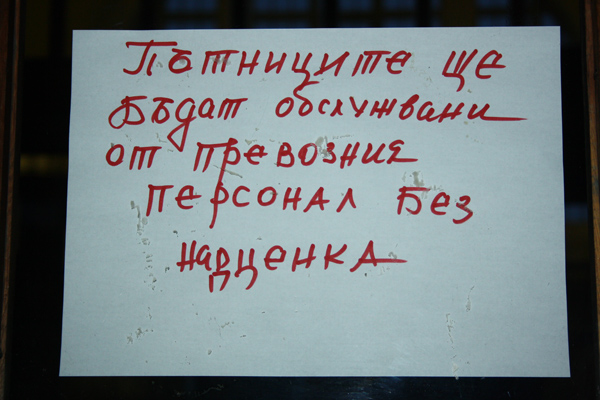 Пътниците ще
бъдат обслужвани
от превозния
персонал без
надценка